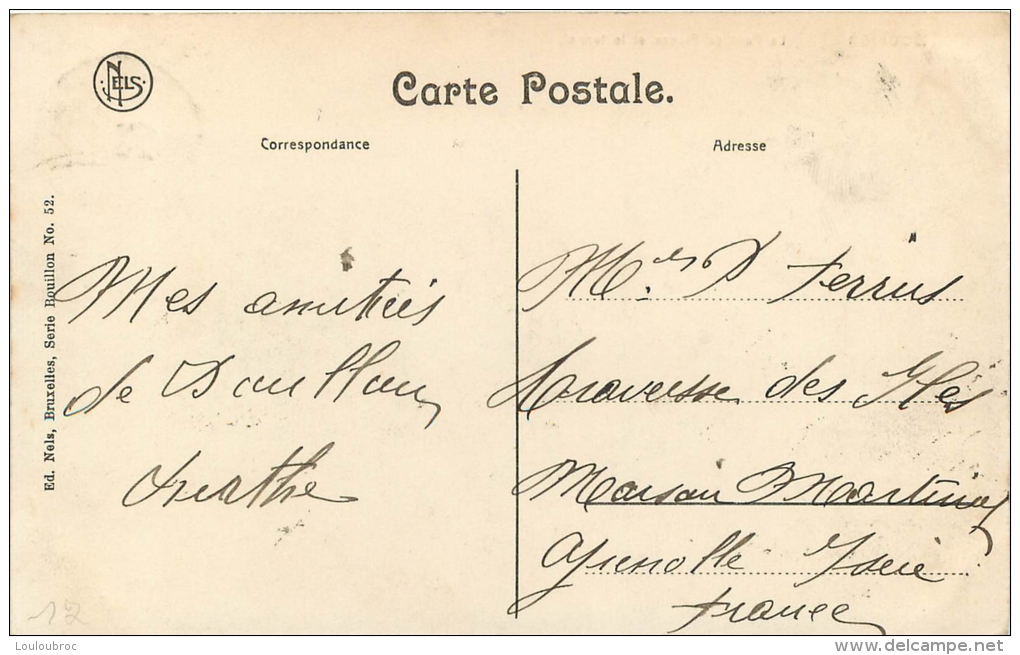 NELS
Carte Postale.
Correspondance
Adresse
Ed. Nels, Bruxelles, Serie Bouillon No. 52.
Mes amitiés
de Bouillon
Mrs P Ferrus
Traverse des Iles
Maison Martinay
Grenoble Isère
France
12
Louloubroc
delcampe.net